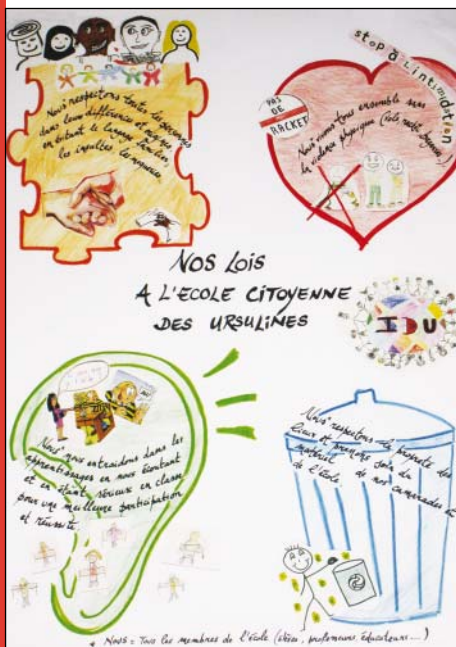 Nous respectons toutes les personnes
dans leur différence et nos
en évitant le langage
les insultes, les moqueries
stop à l'intimidation
PAS
DE
RACKET
Nous vivons tous ensemble sans
la violence physique
NOS LOIS
A L'ECOLE CITOYENNE
DES URSULINES
IDU
Nous nous entraidons dans les
apprentissages en nous écoutant
et en étant sérieux en classe
pour une meilleure participation
et réussite.
Nous respectons la propreté des
lieux et prenons soin du
matériel de nos camarades et
de l'école.
* Nous = Tous les membres de l'école (élèves, professeurs, éducateurs....)